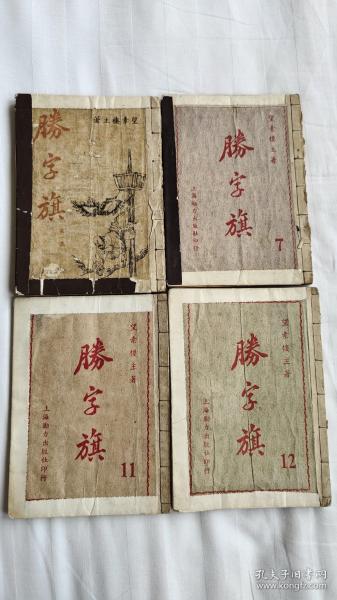 望素樓主著
勝字旗
第一集
望素樓主著
勝字旗
7
上海勵力出版社印行
望素樓主著
勝字旗
11
上海勵力出版社印行
望素樓主著
勝字旗
12
上海勵力出版社印行
孔夫子旧书网